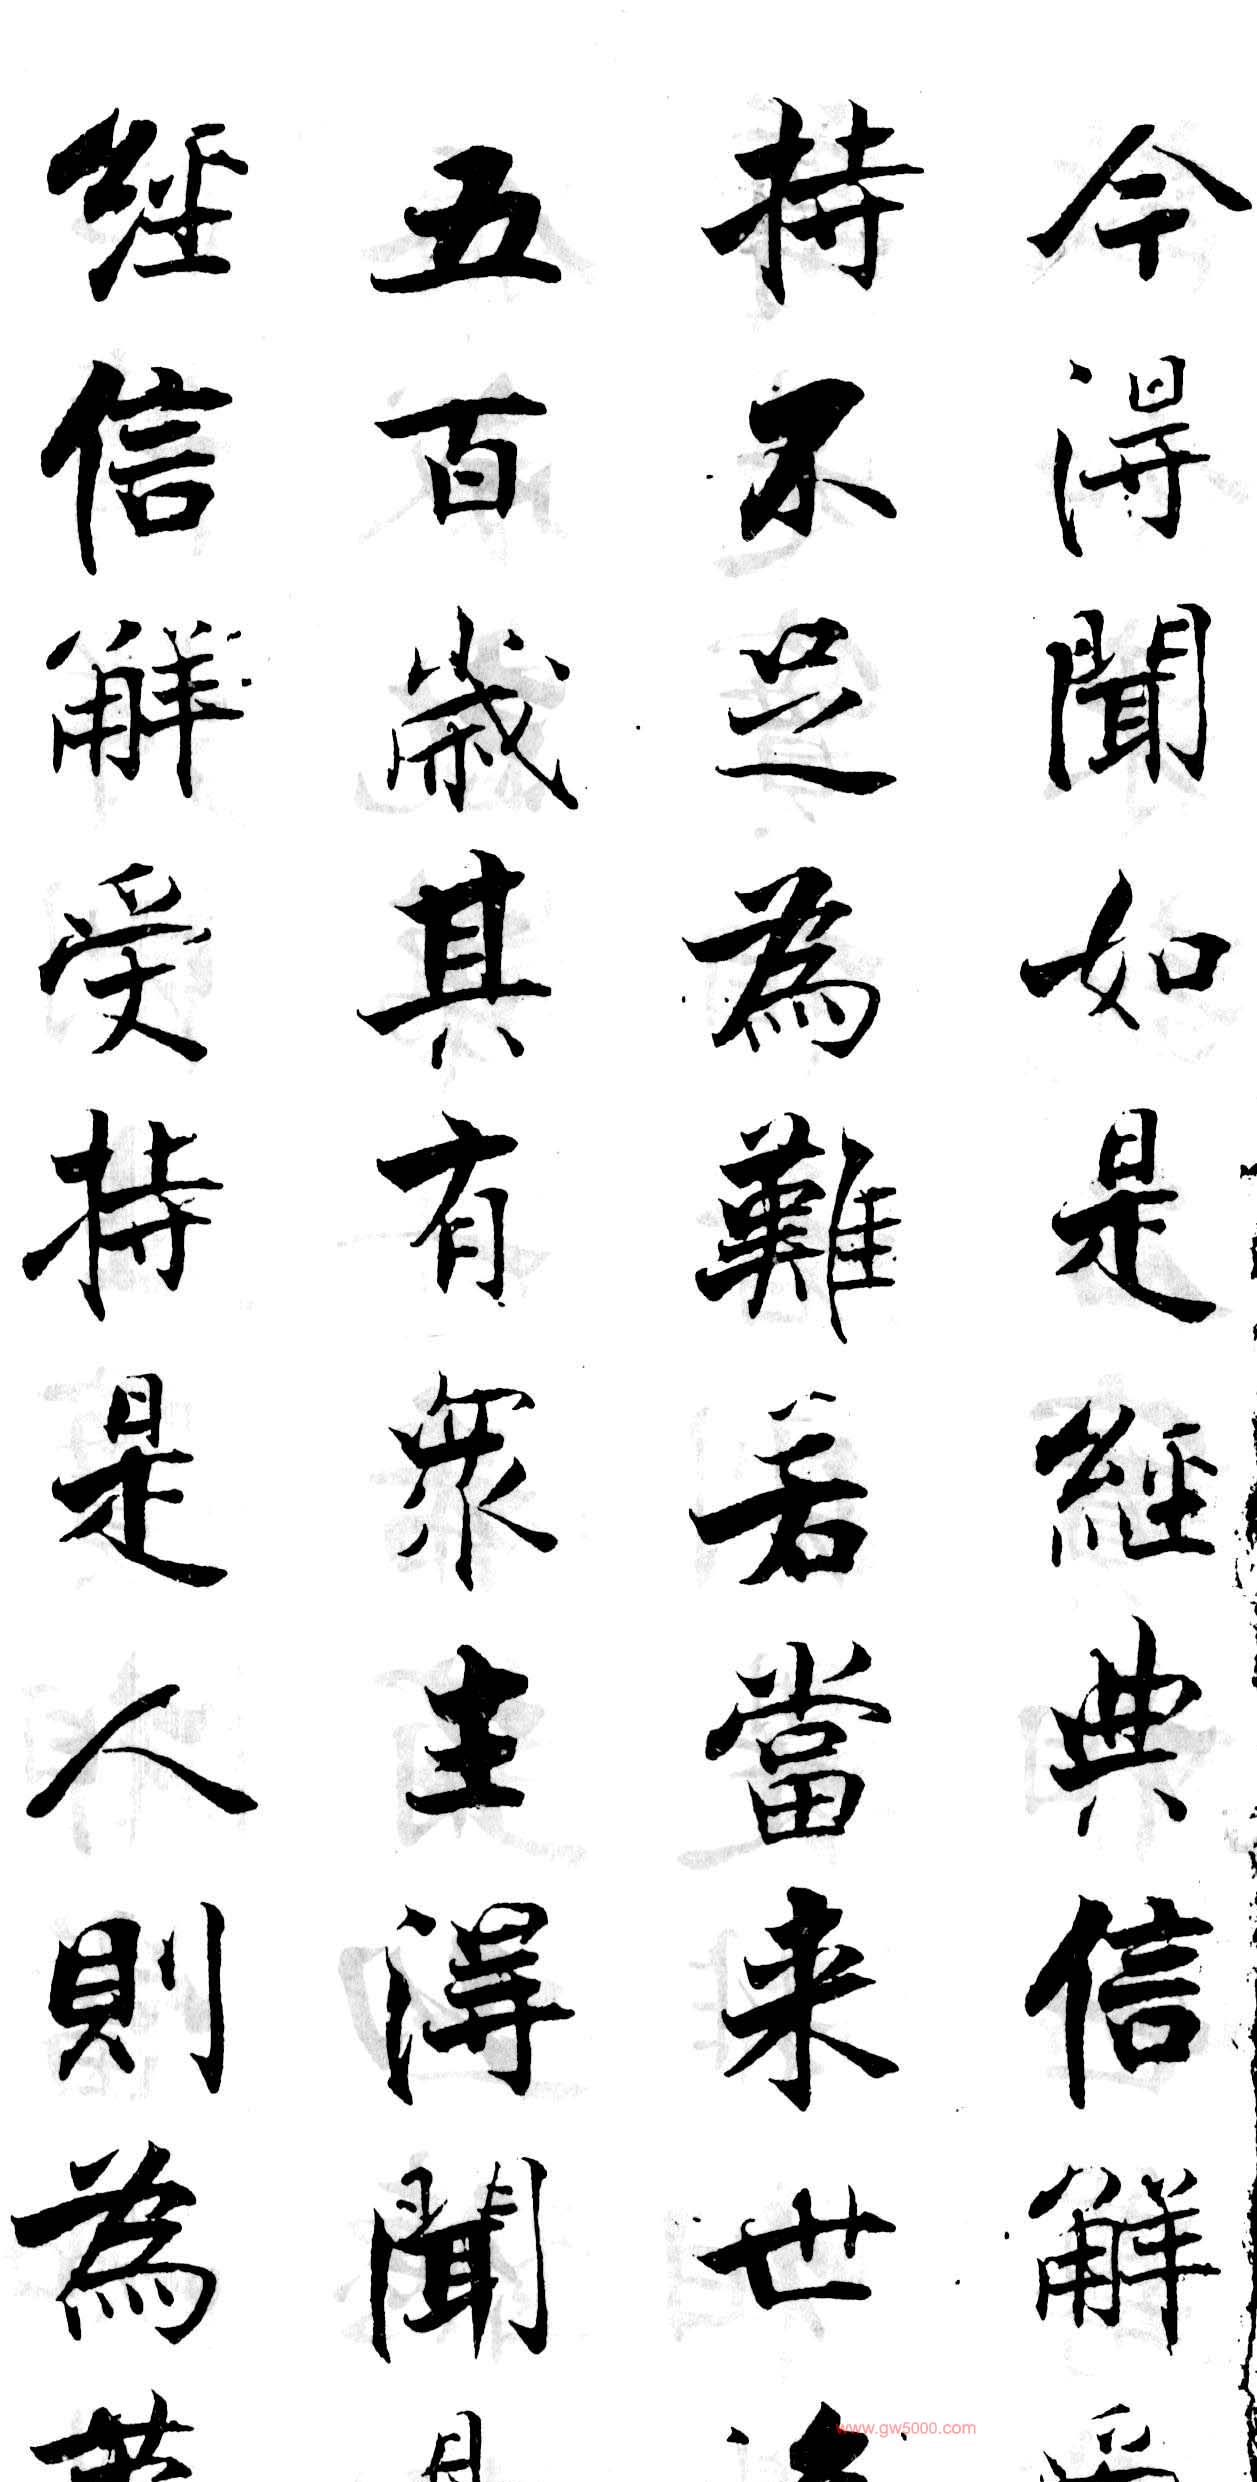 今得聞如是經典信解受
持不足為難若當来世後
五百歲其有衆生得聞是
經信解受持是人則為第
www.gw5000.com